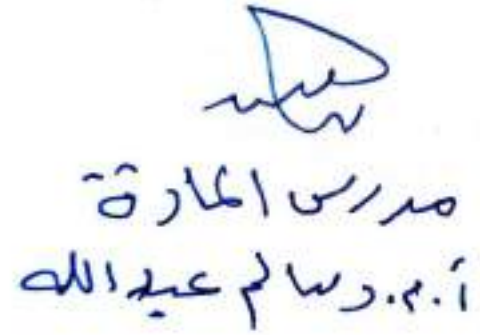 مدرس المادة
أ.م.د سالم عبد الله